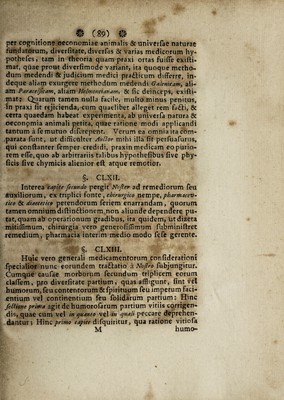 (89)
per cognitione oeconomiae animalis & universae naturae
fundatorum, diversitate, diversas & varias medicorum hy-
potheses, tam in theoria quam praxi ortas fuisse existi-
mat, quae prout diversimode variant, ita quoque metho-
dum medendi & judicium medici practicum differre, in-
deque aliam exurgere methodum medendi Galenicam, ali-
am Paracelsicam, aliam Helmontianam, & sic deinceps, existi-
mat: Quarum tamen nulla facile, multo minus penitus,
in praxi sit rejicienda, cum quaelibet alleget rem facti, &
certa quaedam habeat experimenta, ab universa natura &
oeconomia animali petita, quae ratione modi applicandi
tantum a se mutuo discrepent. Verum ea omnia ita com-
parata sunt, ut difficulter Auctor mihi illa sit persuasurus,
qui constanter semper credidi, praxin medicam eo purio-
rem esse, quo ab arbitrariis falibus hypothesibus sive phy-
sicis sive chymicis alienior est atque remotior.
§. CLXII.
Interea capite secundo pergit Noster ad remediorum seu
auxiliorum, ex triplici fonte, chirurgico nempe, pharmaceu-
tico & diaetetico petendorum seriem enarrandam, quorum
tamen omnium distinctionem, non aliunde dependere pu-
tat, quam ab operationum gradibus, ita quidem, ut diaeta
mitissimum, chirurgia vero generosissimum subministret
remedium, pharmacia interim medio modo sese gerente.
§. CLXIII.
Huic vero generali medicamentorum considerationi
specialior nunc eorundem tractatio à Nostro subjungitur.
Cumque causae morborum secundum triplicem eorum
classem, pro diversitate partium, quas affligunt, sint vel
humorum, seu contentorum & spirituum seu impetum faci-
entium vel continentium seu solidarum partium: Hinc
sectione prima agit de humorosarum partium vitiis corrigen-
dis, quae cum vel in quanto vel in quali peccare deprehen-
dantur: Hinc primo capite disquiritur, qua ratione vitiosa
M humo-